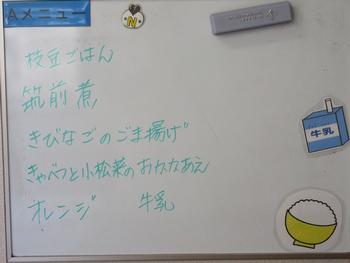 Aメニュー
N
枝豆ごはん
筑前煮
きびなごのごま揚げ
きゃべつと小松菜のおかかあえ
オレンジ 牛乳
牛乳